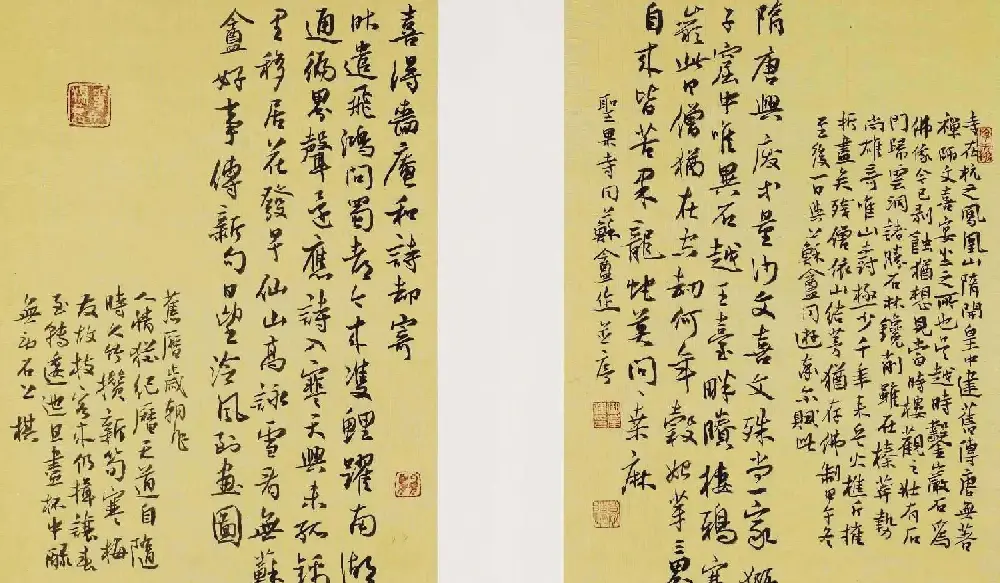 寺在杭之鳳凰山隋開皇中建舊傳唐無著
禪師文喜宴坐之所也吳越時鑿巖石為
佛像今已剥蝕猶想見當時樓觀之壯有石
門歸雲洞諸勝石林鑱削雖在榛莽勢
尚雄奇唯山壽極少千年来兵火樵斤摧
折盡矣殘僧依山結茅猶存佛制甲午冬
至後一日與蘇盦同遊賦此
隋唐興廢量沙文喜文殊尚一家
子窟中唯異石越王臺畔棲鴉寒
巖此日僧猶在空劫何年三界
自来皆苦聚龍蛇莫問〻桑麻
聖果寺同蘇盦作並序
喜得嗇庵和詩却寄
昨遣飛鴻問蜀都今来雙鯉躍南湖
通徧界聲還應詩入寒天興未孤錦
里移居花發早仙山高詠雪看無蘇
盦好事傳新句日望泠風到畫圖
舊曆歲朝作
人情猶紀曆天道自隨
時久竹攢新筍寒梅
友故枝客來仍揖讓春
至轉逶迤且盡杯中醁
無勞石上棋